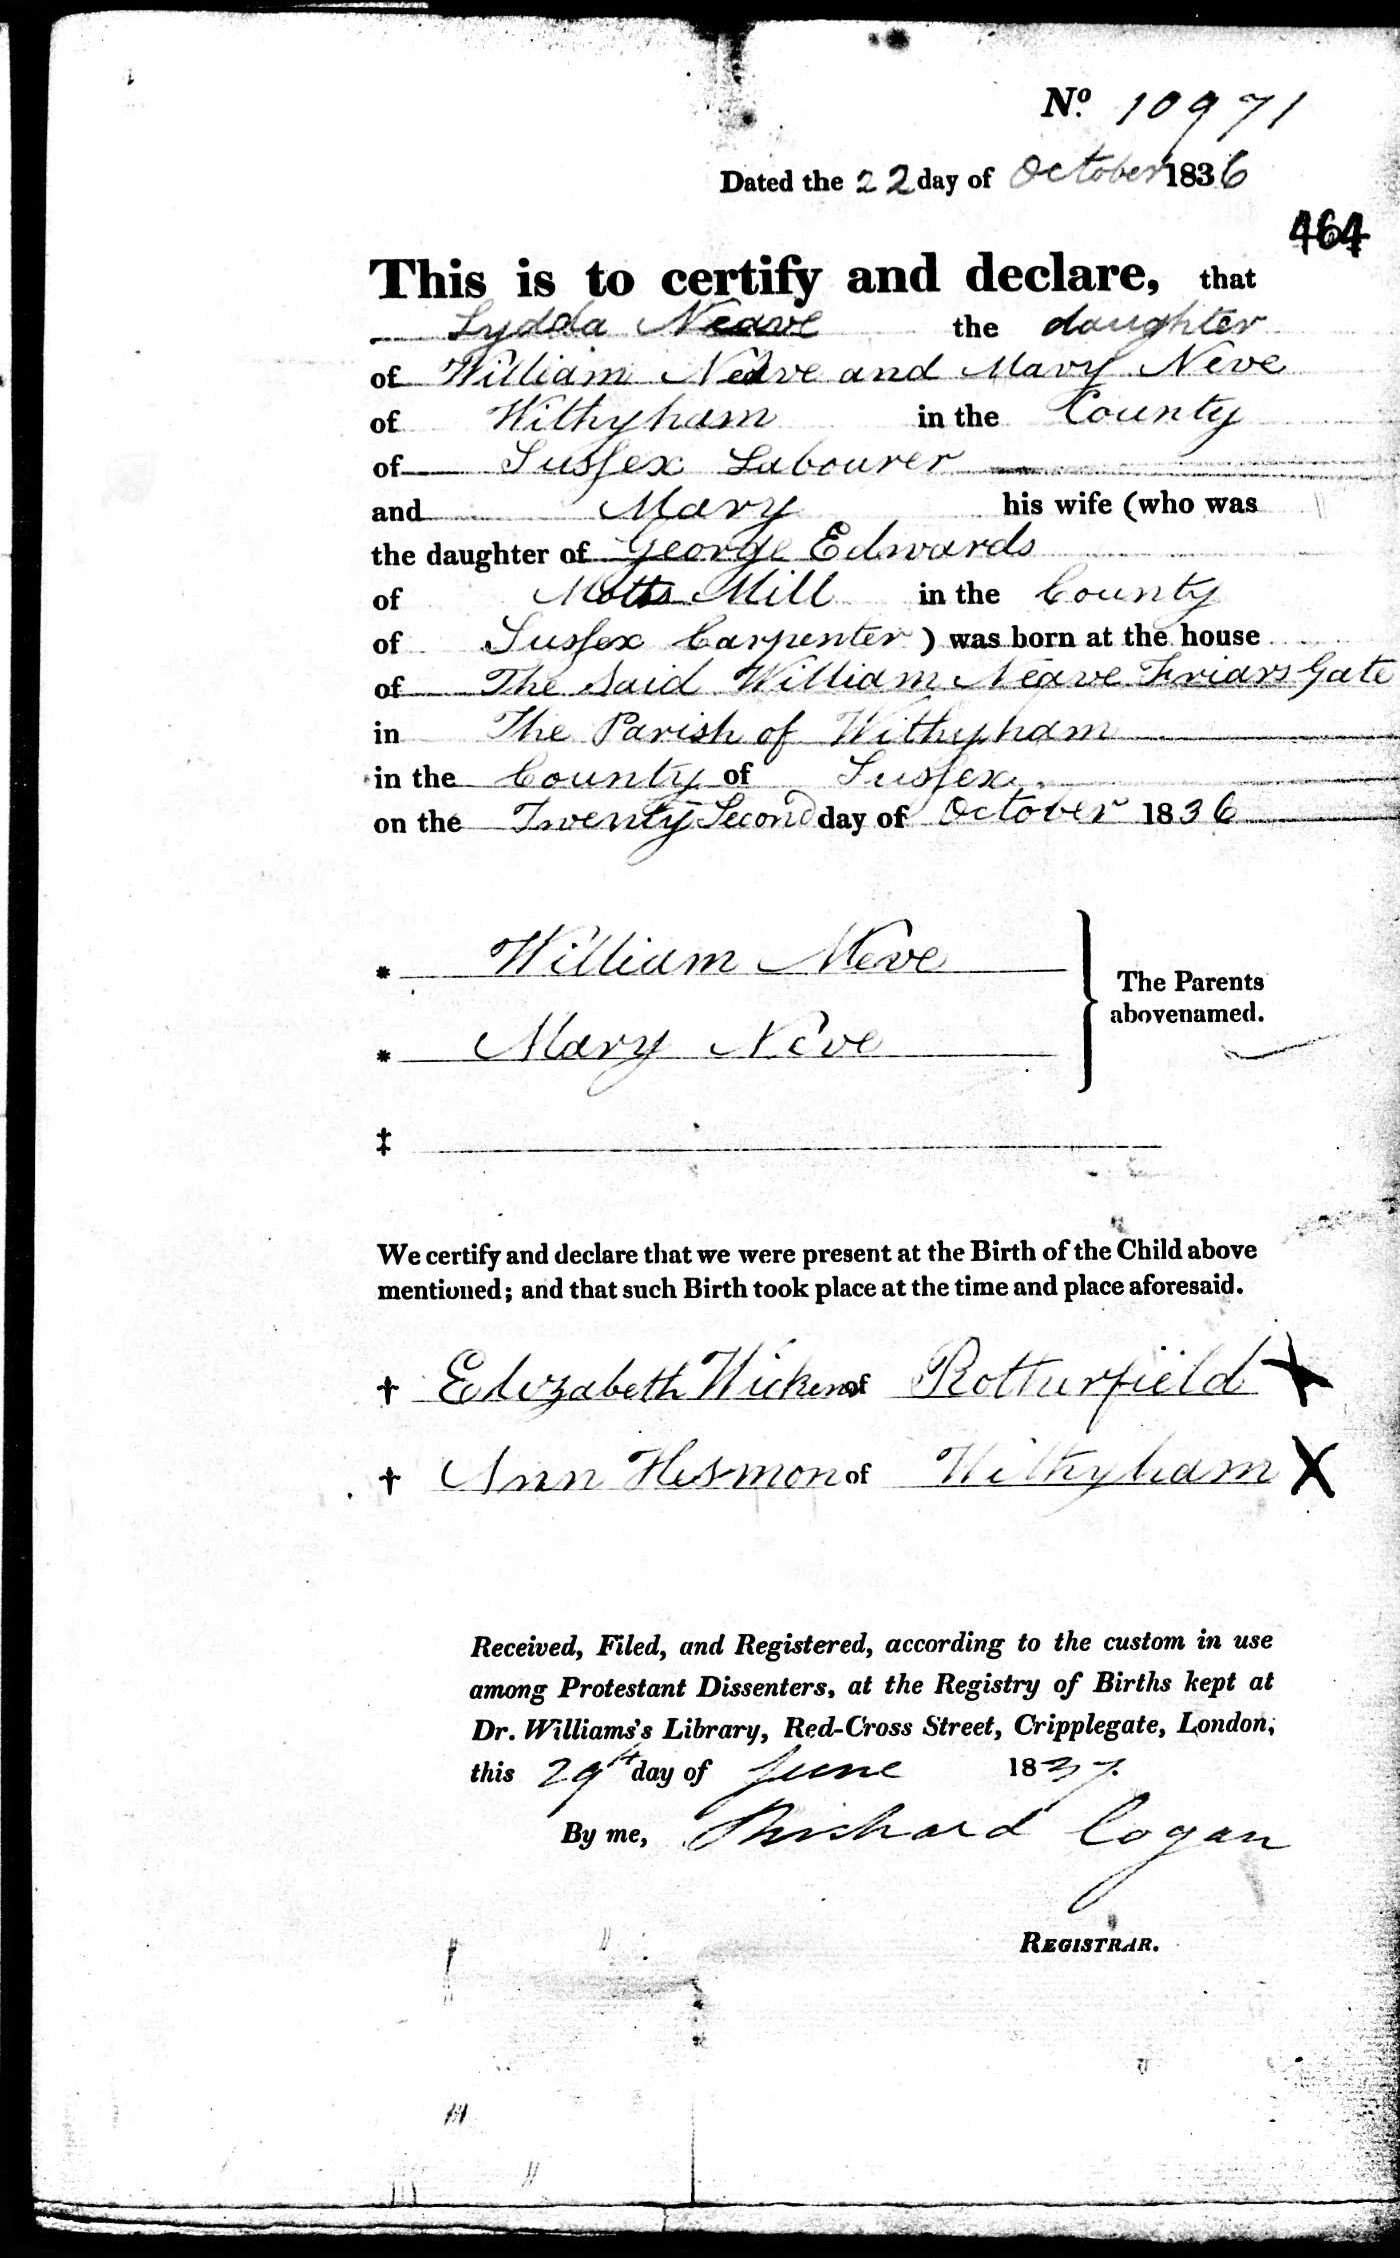 No. 10971
Dated the 22 day of October 1836
464
This is to certify and declare, that
Lydda Neave the daughter
of William Neave and Mary Neve
of Withyham in the County
of Sussex Labourer
and Mary his wife (who was
the daughter of George Edwards
of Motts Mill in the County
of Sussex Carpenter) was born at the house
of The Said William Neave Friars Gate
in The Parish of Withyham
in the County of Sussex
on the Twenty Second day of October 1836
* William Neve
The Parents
abovenamed.
* Mary Neve
‡
We certify and declare that we were present at the Birth of the Child above
mentioned; and that such Birth took place at the time and place aforesaid.
† Elizabeth Wickens of Rotherfield X
† Ann Hesmon of Withyham X
Received, Filed, and Registered, according to the custom in use
among Protestant Dissenters, at the Registry of Births kept at
Dr. Williams's Library, Red-Cross Street, Cripplegate, London,
this 29th day of June 1837.
By me, Richard Cogan
REGISTRAR.